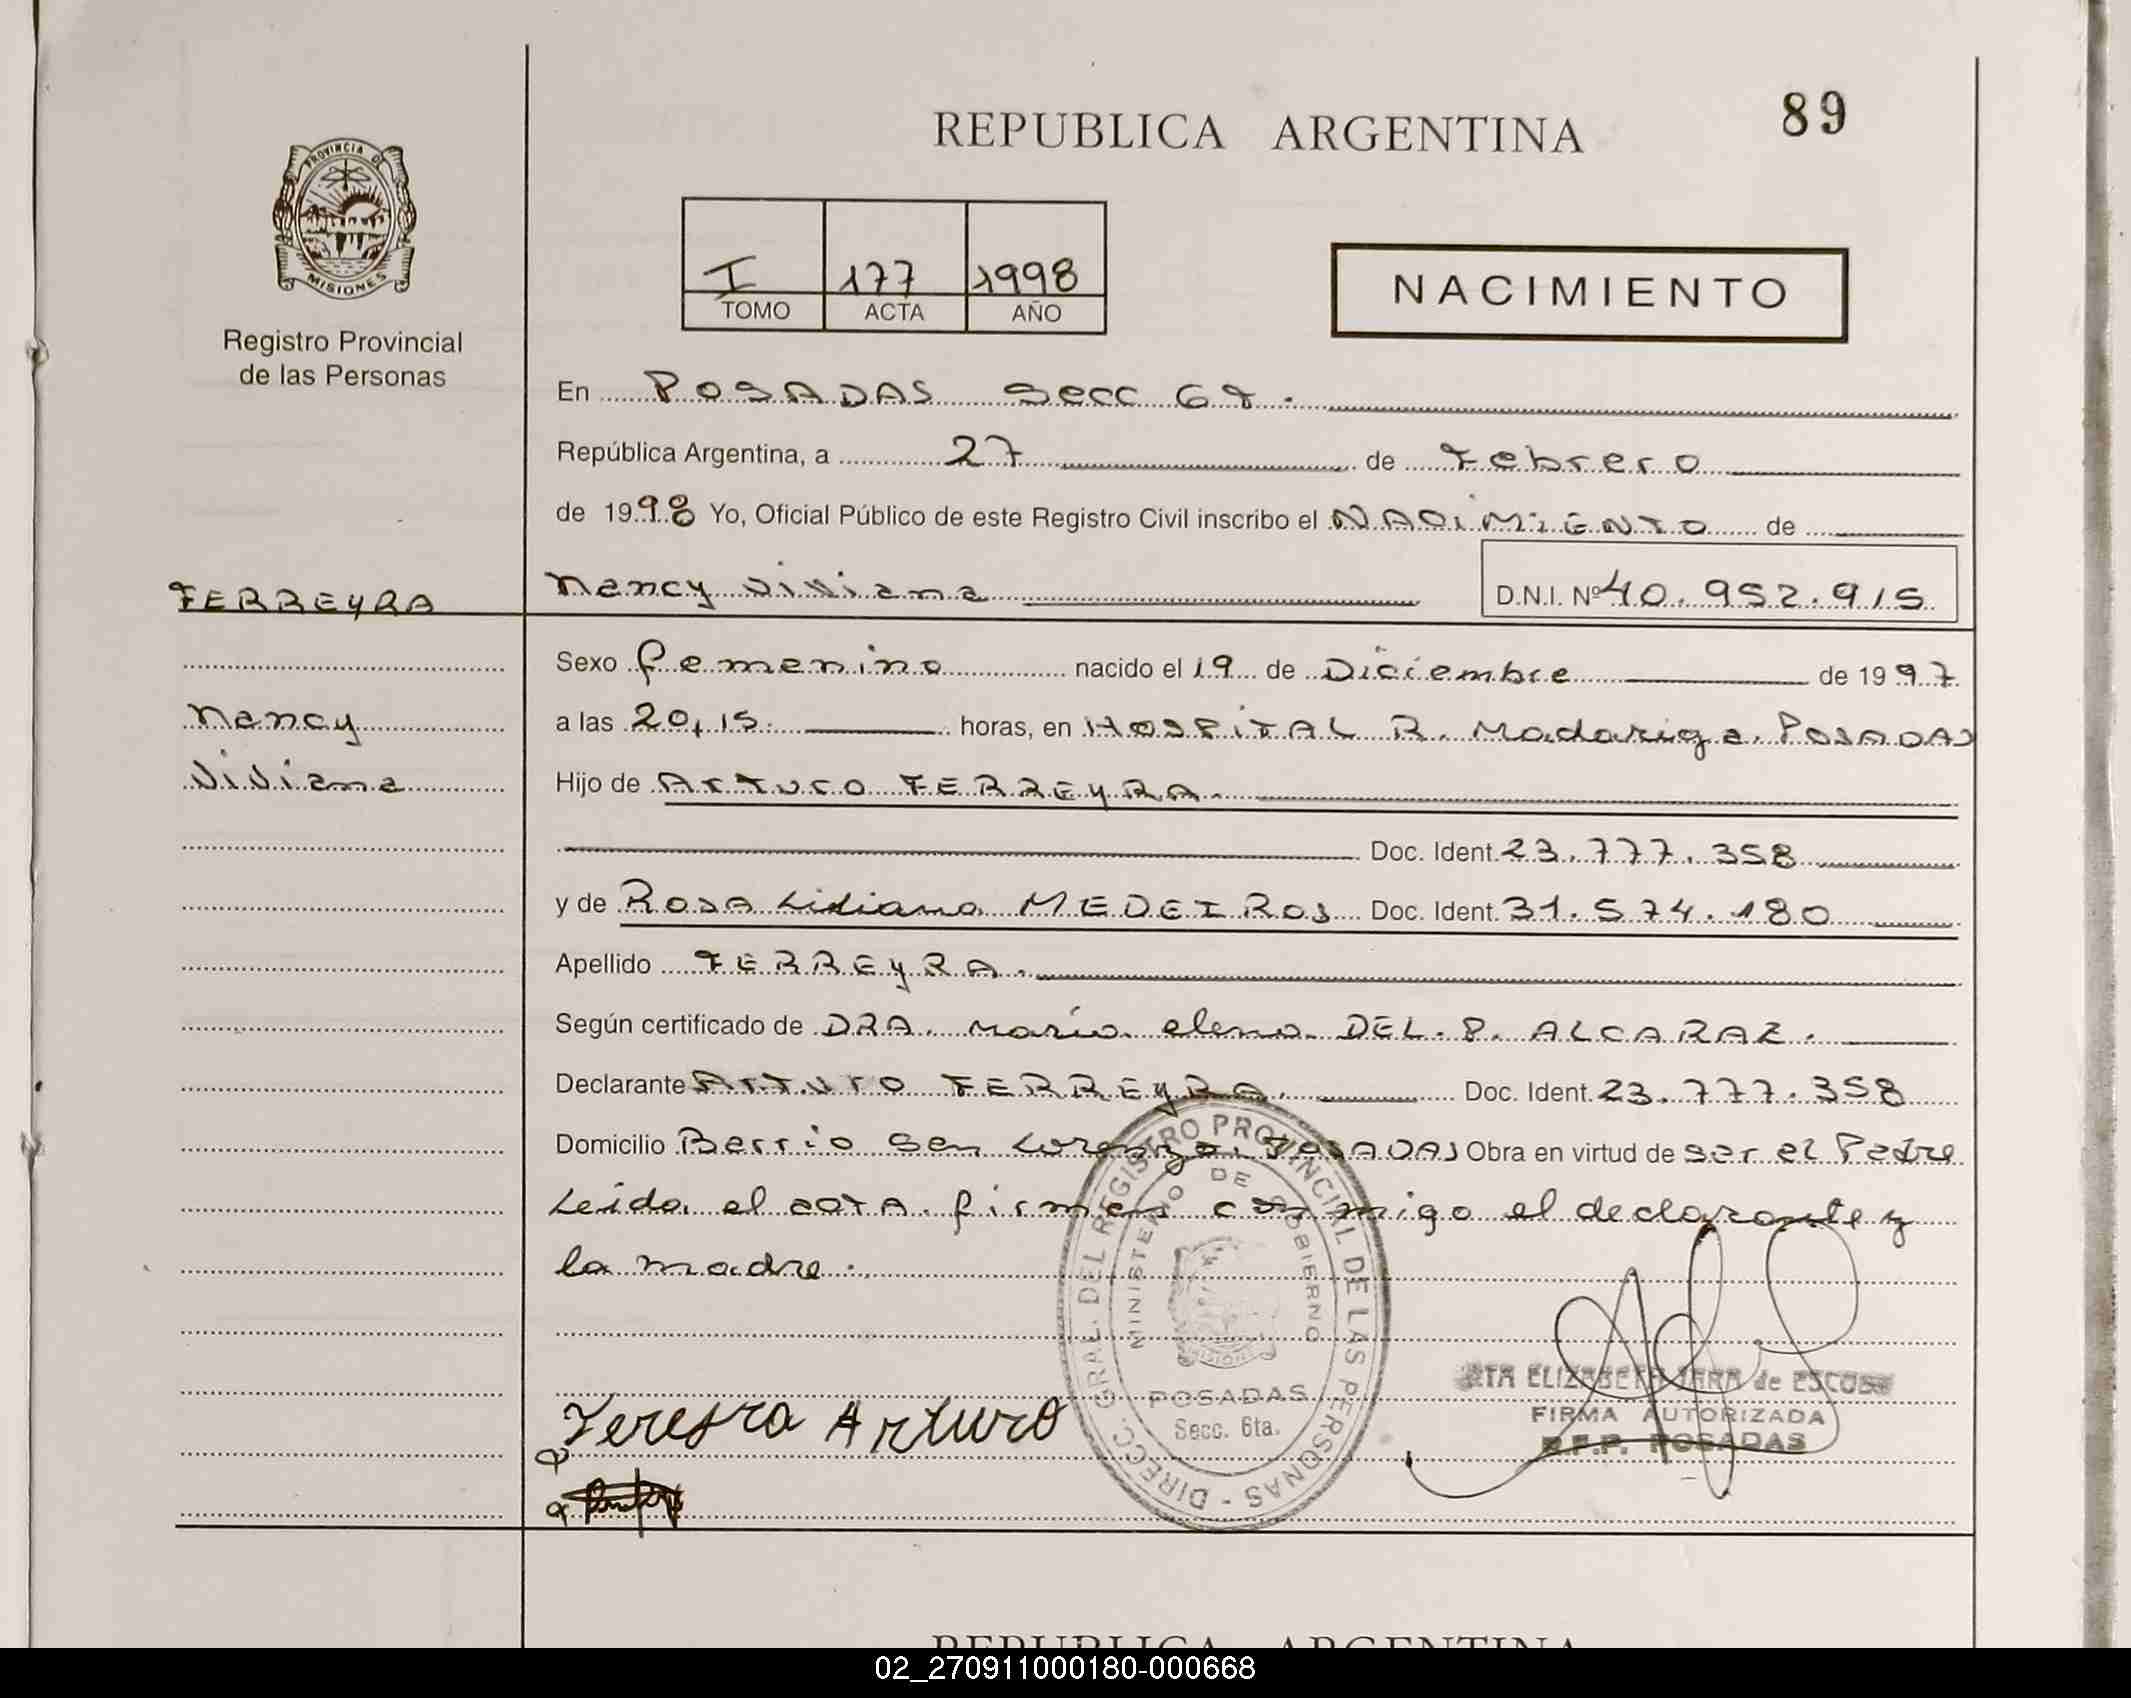 89
REPUBLICA ARGENTINA
PROVINCIA DE
MISIONES
Registro Provincial
de las Personas
I 177 1998
TOMO ACTA AÑO
NACIMIENTO
En POSADAS Secc 6ª.
República Argentina, a 27 de Febrero
de 1998 Yo, Oficial Público de este Registro Civil inscribo el NACIMIENTO de
FERREYRA
Nancy Viviana D.N.I. Nº 40.952.915
Sexo femenino nacido el 19 de Diciembre de 1997
Nancy
a las 20,15. horas, en HOSPITAL R. Madariaga. POSADAS
Viviana
Hijo de Arturo FERREYRA.
Doc. Ident. 23.777.358
y de ROSA Liliana MEDEIROS Doc. Ident. 31.574.180
Apellido FERREYRA.
Según certificado de DRA. María elena DEL.P. ALCARAZ.
Declarante Arturo FERREYRA. Doc. Ident. 23.777.358
Domicilio Barrio San Lorenzo. POSADAS Obra en virtud de ser el Padre
Leida el acta firman conmigo el declarante y
la madre.
DIRECC. GRAL. DEL REGISTRO PROVINCIAL DE LAS PERSONAS -
MINISTERIO DE GOBIERNO
MISIONES
POSADAS
Secc. 6ta.
ELIZABETH de
FIRMA AUTORIZADA
R.P.P. POSADAS
Arturo
REPUBLICA ARGENTINA
02_270911000180-000668